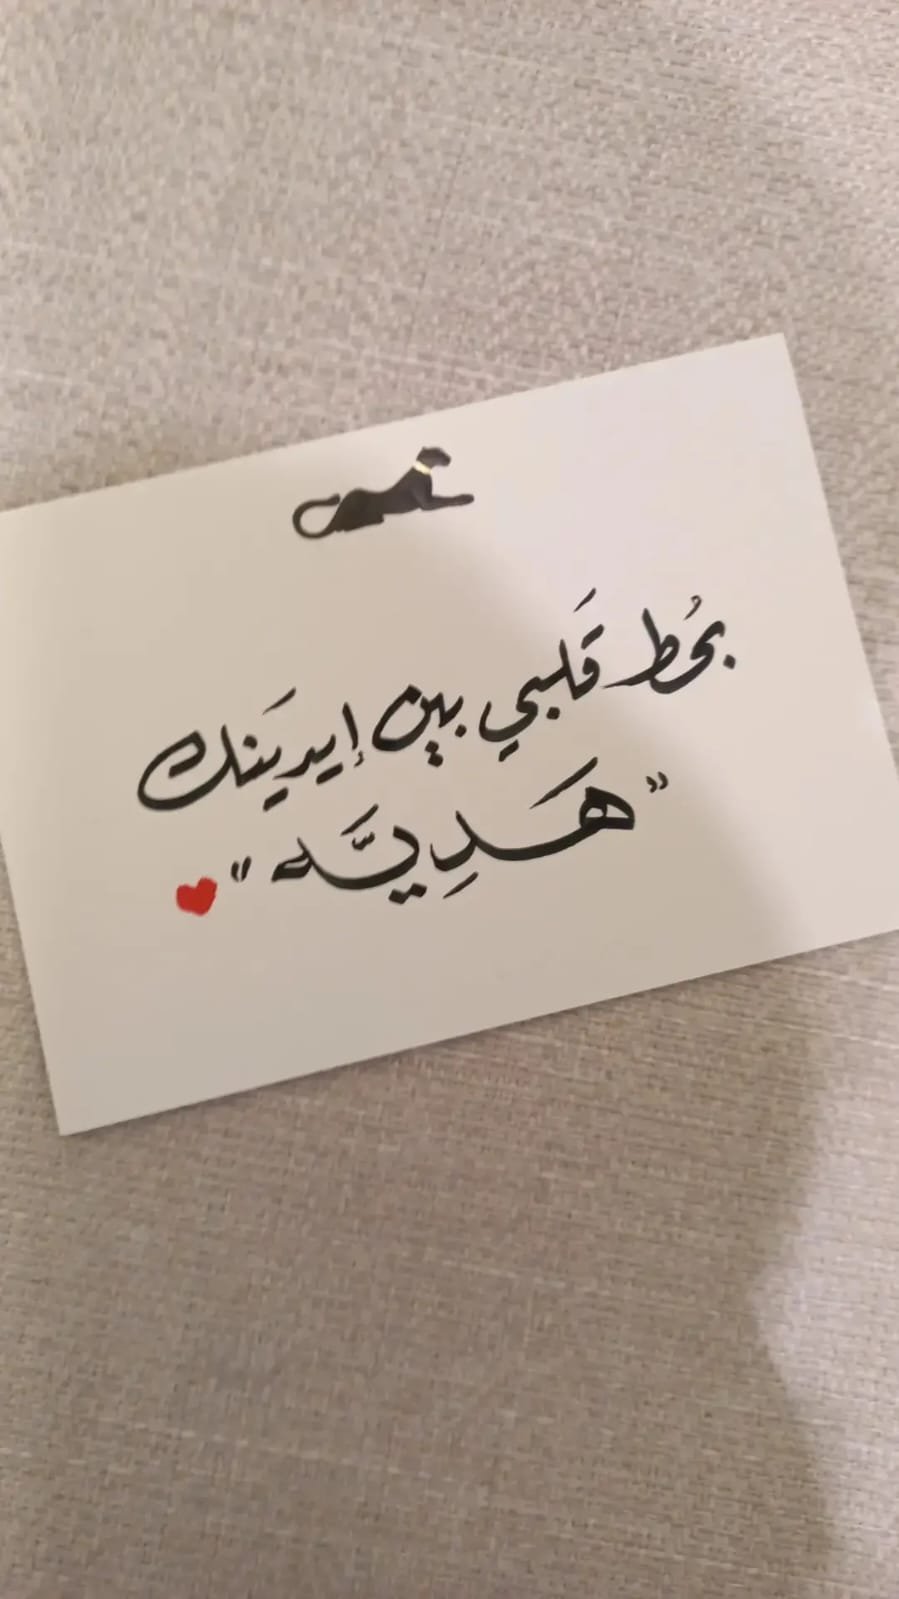 بحُط قَلبي بين إيدينَك
"هَدِيَّه"